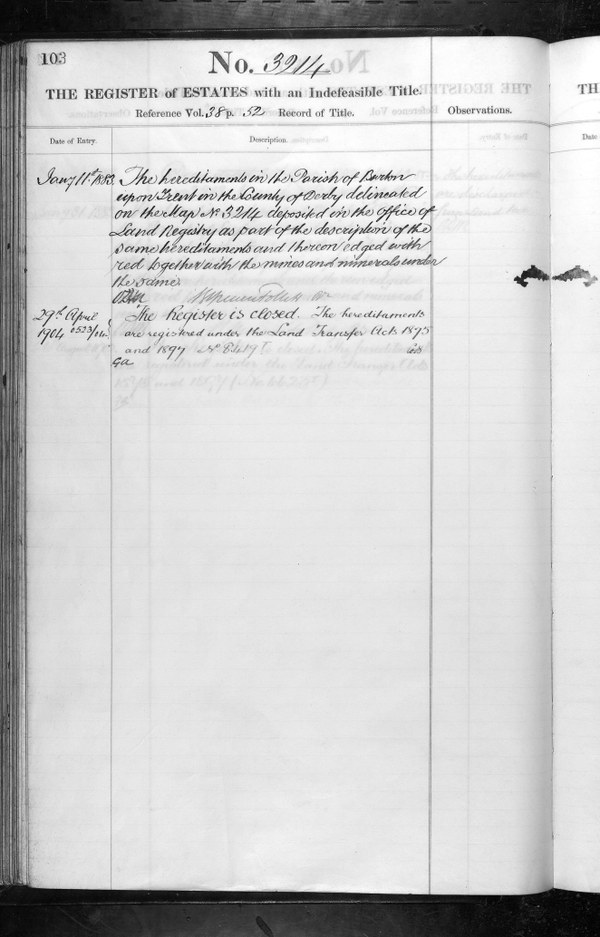 103
No. 3214
THE REGISTER of ESTATES with an Indefeasible Title.
Reference Vol. 38 p. 52 Record of Title.
Observations.
Date of Entry.
Description.
Jany 11th 1883. The hereditaments in the Parish of Burton
upon Trent in the County of Derby delineated
on the Map No 3214 deposited in the Office of
Land Registry as part of the description of the
same hereditaments and thereon edged with
red together with the mines and minerals under
the same.
29th April The Register is closed. The hereditaments
1904 are registered under the Land Transfer Acts 1875
and 1897
TH
Date